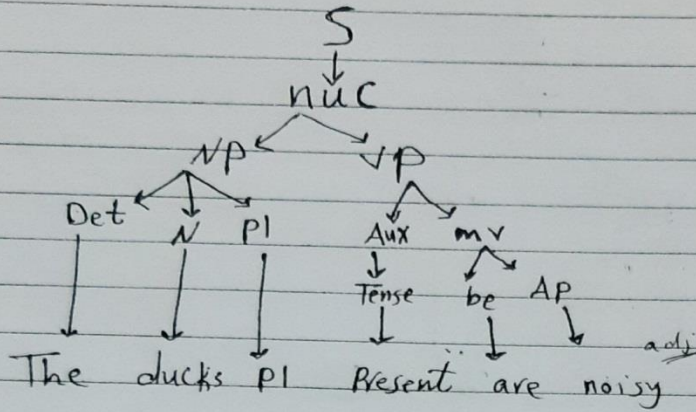 S
nuc
NP VP
Det N Pl Aux mv
Tense be AP
adj
The ducks Pl Present are noisy